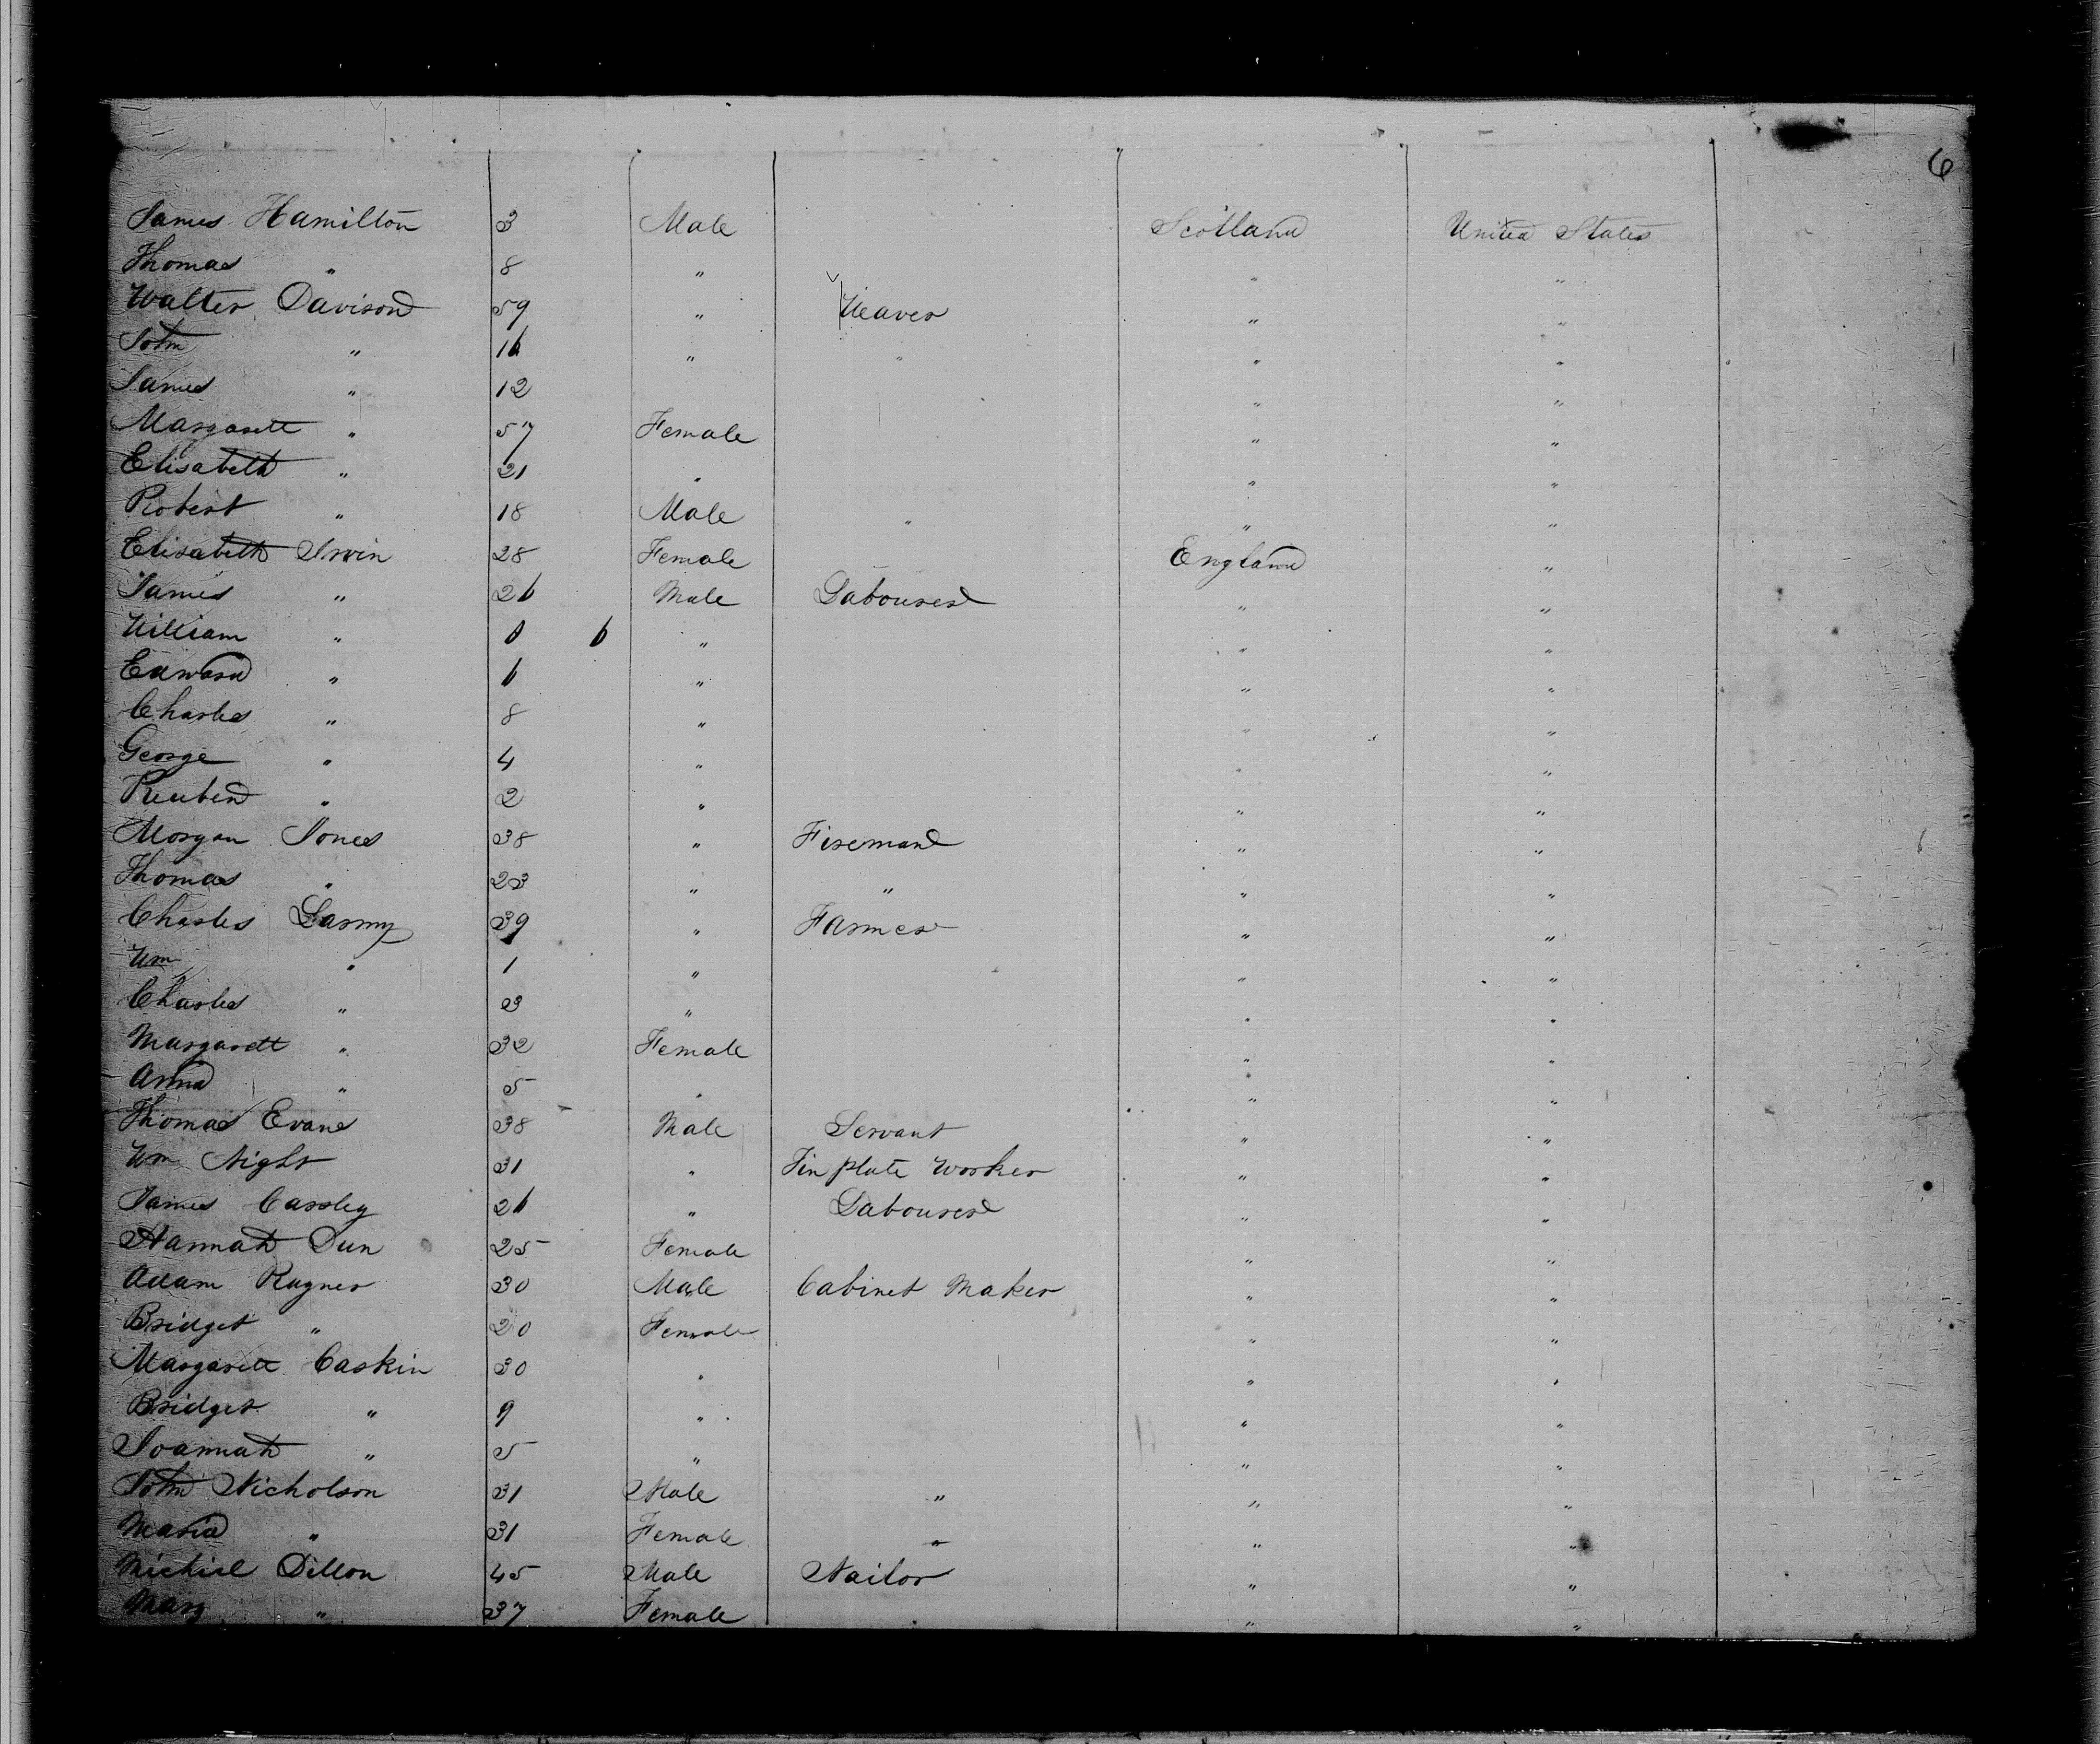 6
James Hamilton 3 Male Scotland United States
Thomas " 8 " " "
Walter Davison 59 " Weaver " "
John " 16 " " " "
James " 12 " "
Margarett " 57 Female " "
Elisabeth " 21 " " "
Robert " 18 Male " " "
Elisabeth Irwin 28 Female England "
James " 26 Male Labourer " "
William " 0 6 " " "
Edward " 6 " " "
Charles " 8 " " "
George " 4 " " "
Reuben " 2 " " "
Morgan Jones 38 " Fireman " "
Thomas " 23 " " " "
Charles Larmy 39 " Farmer " "
Wm " 1 " " "
Charles " 3 " " "
Margarett " 32 Female " "
Anna " 5 " " "
Thomas Evans 38 Male Servant " "
Wm Night 31 " Tin plate Worker " "
James Cassley 26 " Labourer " "
Hannah Dun 25 Female " "
Adam Rayner 30 Male Cabinet Maker " "
Bridget " 20 Female " "
Margarett Caskin 30 " " "
Bridget " 9 " " "
Joannah " 5 " " "
John Nicholson 31 Male " " "
Maria " 31 Female " " "
Michiel Dillon 45 Male Nailor " "
Mary " 37 Female " "